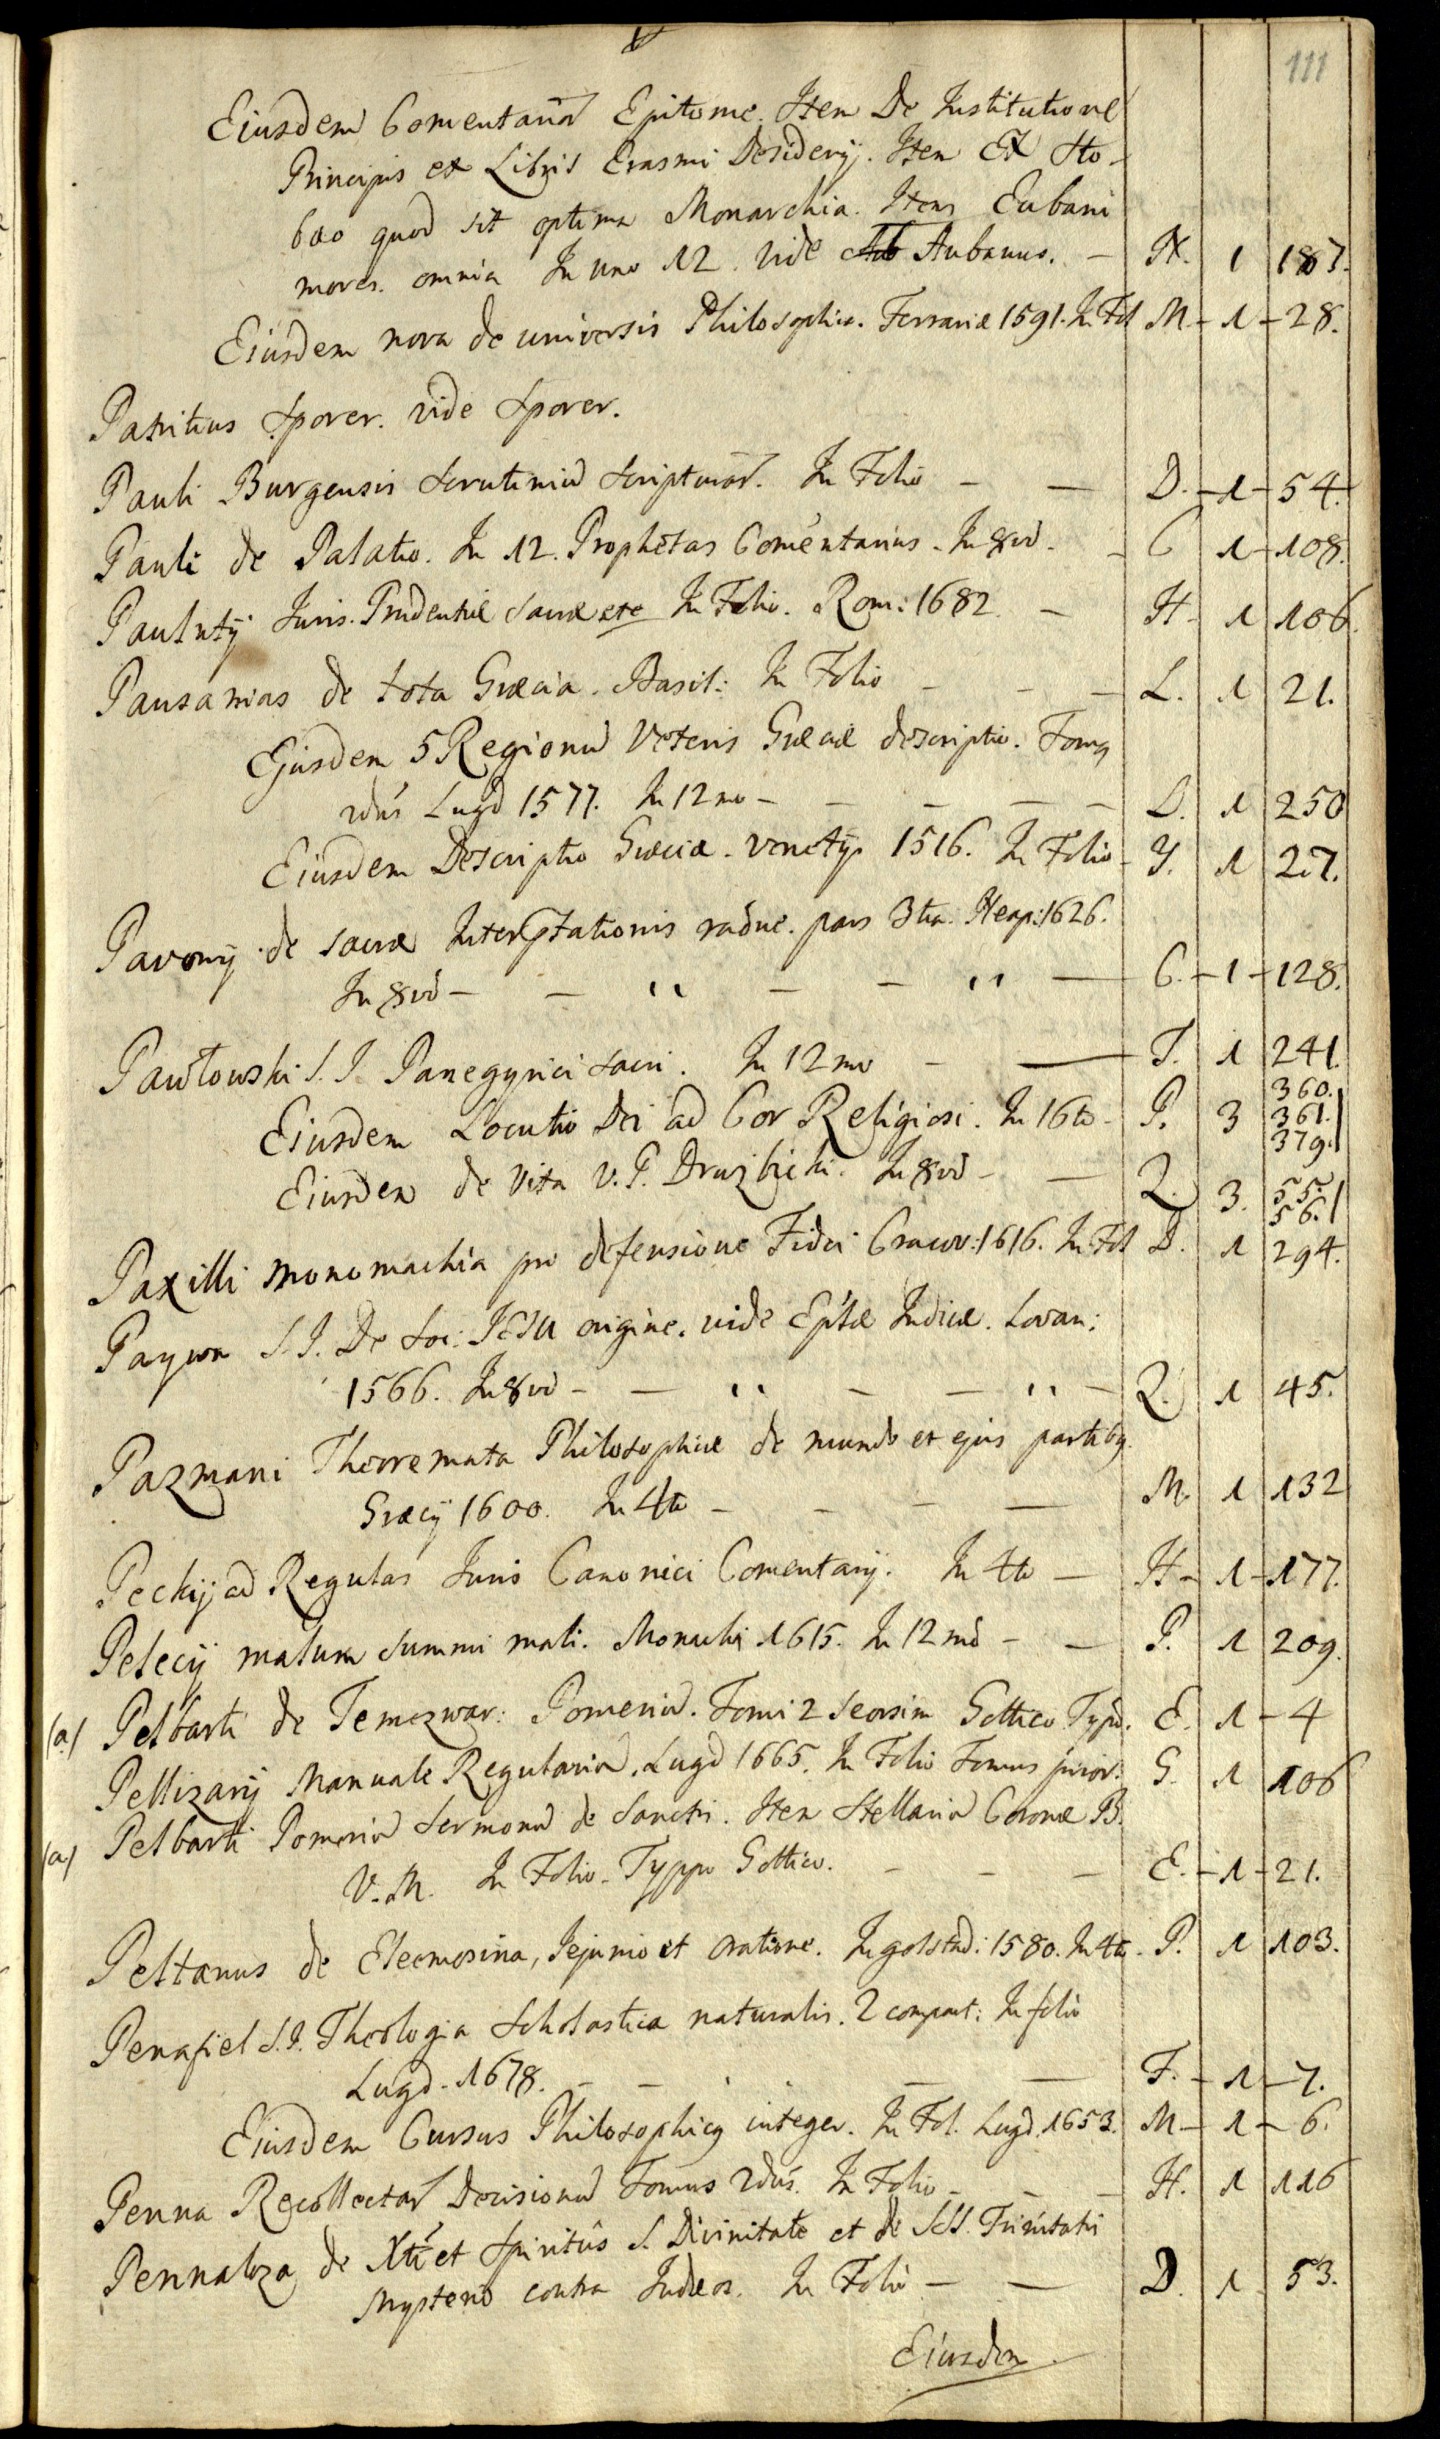 111
Eiusdem Comentariorum Epitome. Item De Institutione
Principis ex Libris Erasmi Desiderij. Item Ex Sto-
bæo quod sit optima Monarchia. Item Eubani
mores. omnia In uno 12. vide Aubanus. — IX. 1 187.
Eiusdem nova de universis Philosophia. Ferrariæ 1591. In Fol M. - 1 - 28.
Patritius Sporer. vide Sporer.
Pauli Burgensis Scrutiniū Scripturar. In Folio — — D. - 1 - 54.
Pauli de Palatio. In 12. Prophetas Comentarius. In 8vo. - C 1 - 108.
Paulutij Juris-Prudentiæ Sacræ etc In Folio. Rom: 1682 — H - 1 106.
Pausanias de tota Græcia. Basil: In Folio — — — L. 1 21.
Ejusdem 5 Regionū Veteris Græciæ descriptio. Tomq
2dus Lugd 1577. In 12mo — — — — — L. 1 250
Eiusdem Descriptio Græciæ. Venetijs 1516. In Folio - Y. 1 27.
Pavonij de sacræ Interptationis raõne. pars 3tia. Neap: 1626.
In 8vo — — " — — " — C. - 1 - 128.
Pawłowski S. J. Panegyrici sacri. In 12mo — — T. 1 241.
Eiusdem Locutio Dei ad Cor Religiosi. In 16to - P. 3 360.
361.
379.
Eiusdem de Vita V. P. Druzbicki. In 8vo — — Q. 3. 55.
56.
Paxilli Monomachia pro defensione Fidei Cracov: 1616. In Fol D. 1 294.
Payva S. J. De Soc: JESU origine. vide Eplæ Indicæ. Lovan:
1566. In 8vo — — " — — " — Q. 1 45.
Pazmani Theoremata Philosophica de mundo et ejus partibq.
Græcij 1600. In 4to — — — — M. 1 132
Peckij ad Regulas Juris Canonici Comentarij. In 4to — H - 1 - 177.
Pelecij malum summi mali. Monachi 1615. In 12mo — — P. 1 209.
(a) Pelbarti de Temezwar: Pomeriū. Tomi 2 seorsim Gottico Typo. E. 1 - 4
Pellizarij Manuale Regulariū. Lugd 1665. In Folio Tomus prior. G. 1 106
(a) Pelbarti Pomeriū Sermonū de Sanctis. Item Stellariū Coronæ B.
V. M. In Folio. Typpo Gottico. — — — E. - 1 - 21.
Peltanus de Eleemosina, Jejunio et Oratione. Ingolstad: 1580. In 4to - P. 1 103.
Penafiel S. J. Theologia Scholastica naturalis. 2 compact: In folio
Lugd. 1678. — — — — F. - 1 - 7.
Eiusdem Cursus Philosophicq integer. In Fol. Lugd. 1653. M - 1 - 6.
Penna Recollectar Decisionū Tomus 2dus. In Folio — — — H. 1 116
Pennaloza de Xti et Spiritûs S. Divinitate et de SSS. Trinitatis
Mysterio contra Judæos. In Folio — — D. 1 53.
Eiusdem